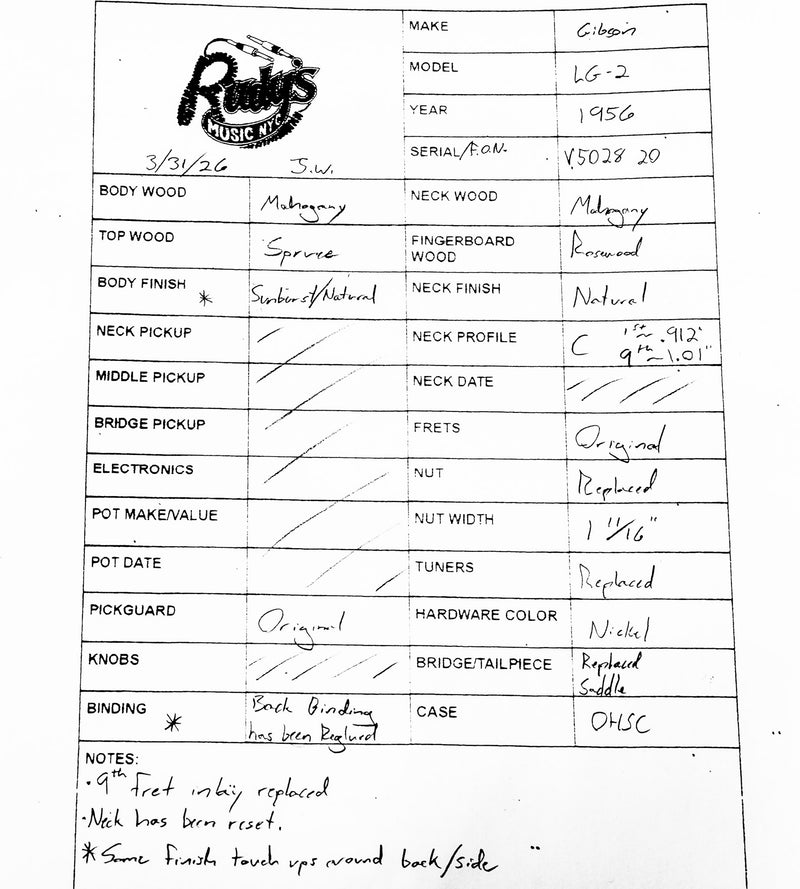 Rudy's
MUSIC NYC
3/31/26 J.W.
MAKE Gibson
MODEL LG-2
YEAR 1956
SERIAL/F.O.N. V5028 20
BODY WOOD Mahogany NECK WOOD Mahogany
TOP WOOD Spruce FINGERBOARD WOOD Rosewood
BODY FINISH * Sunburst/Natural NECK FINISH Natural
NECK PICKUP NECK PROFILE C 1st ~ .912"
9th ~ 1.01"
MIDDLE PICKUP NECK DATE
BRIDGE PICKUP FRETS Original
ELECTRONICS NUT Replaced
POT MAKE/VALUE NUT WIDTH 1 11/16"
POT DATE TUNERS Replaced
PICKGUARD Original HARDWARE COLOR Nickel
KNOBS BRIDGE/TAILPIECE Replaced
Saddle
BINDING * Back Binding
has been Reglued CASE OHSC
NOTES:
· 9th fret inlay replaced
· Neck has been reset.
* Some finish touch ups around back/side